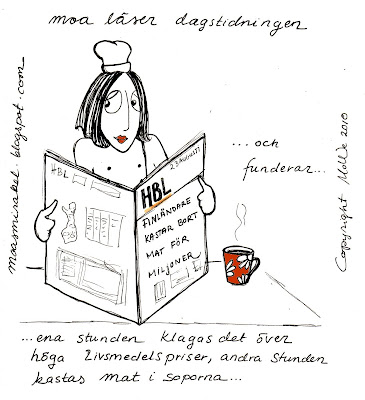 moa läser dagstidningen
moasmirakel.blogspot.com
HBL
HBL
23 AUGUSTI
FINLÄNDARE
KASTAR BORT
MAT FÖR
MILJONER
...och
funderar...
Copyright MollWe 2010
...ena stunden klagas det över
höga livsmedelspriser, andra stunden
kastas mat i soporna...